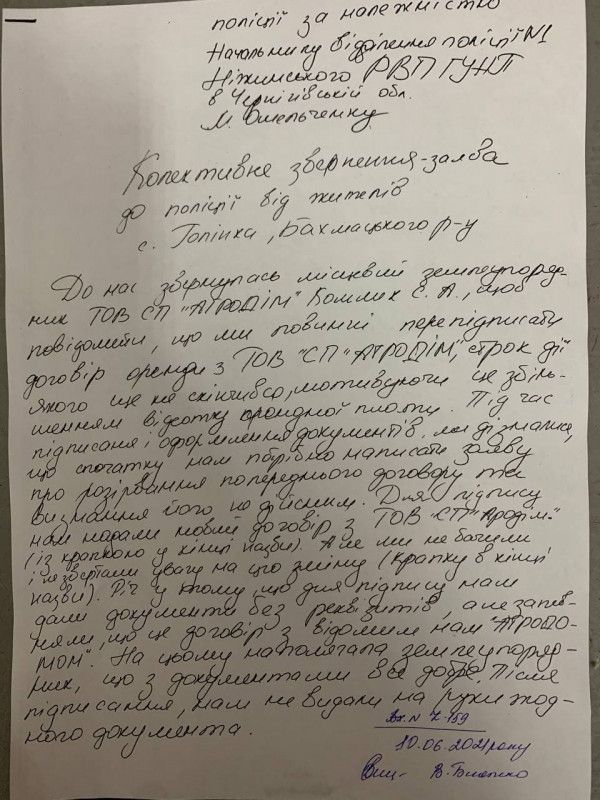 поліції за належністю
Начальнику відділення поліції №1
Ніжинського РВП ГУНП
в Чернігівській обл.
М. Омельченку
Колективне звернення-заява
до поліції від жителів
с. Голінка, Бахмацького р-у
До нас звернулась місцевий землеупоряд-
ник ТОВ СП "АГРОДІМ" Комлик Є. А., щоб
повідомити, що ми повинні перепідписати
договір оренди з ТОВ "СП "АГРОДІМ", строк дії
якого ще не скінчився, мотивуючи це збіль-
шенням відсотку орендної плати. Під час
підписаня і оформлення документів, ми дізнались,
що спочатку нам потрібно написати заяву
про розірвання попереднього договору та
визнання його не дійсним. Для підпису
нам надали новий договір з ТОВ "СП "Агродім."
(із крапкою у кінці назви). Але ми не бачили
і не звертали увагу на цю зміну (крапку в кінці
назви). Річ у тому, що для підпису нам
дали документи без реквізитів, але запев-
няли, що це договір з відомим нам "АГРОДІ-
МОМ". На цьому наполягала землеупоряд-
ник, що з документами все добре. Після
підписання, нам не видали на руки жод-
ного документа.
Вх. N 7-159
10.06.2021 року